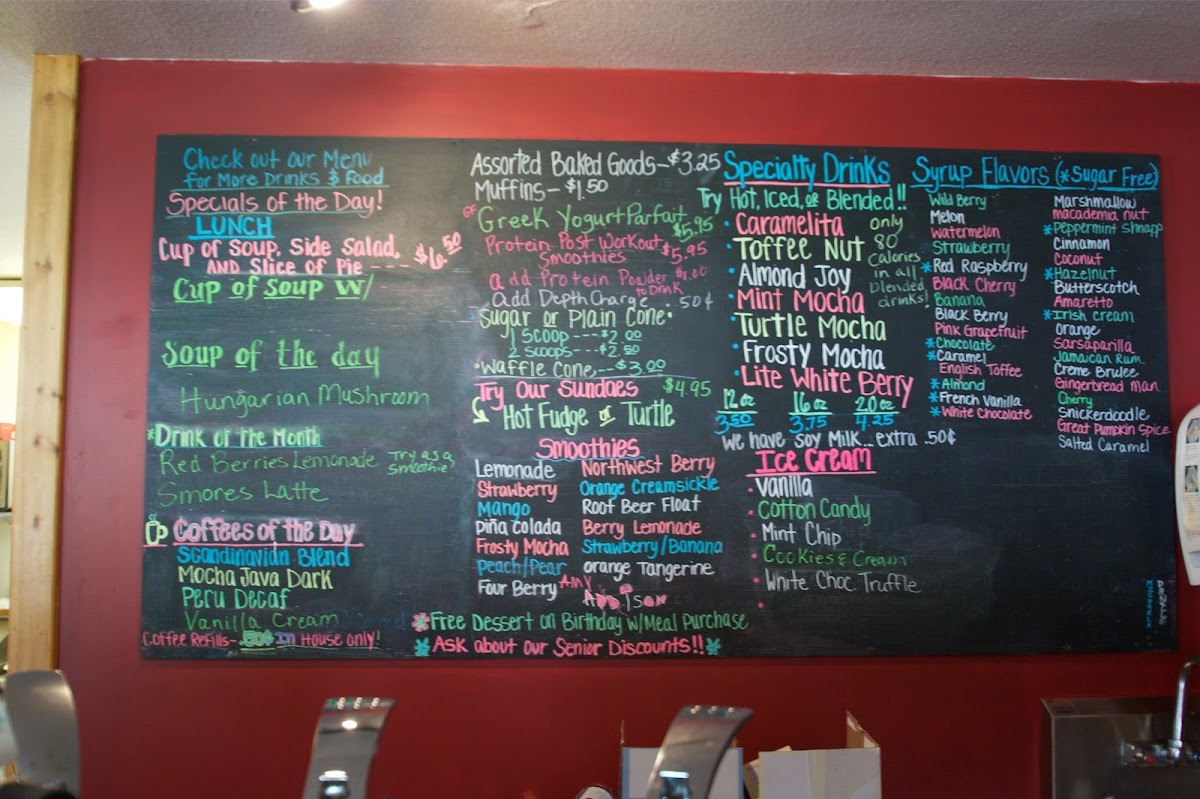 Check out our Menu
for More Drinks & Food
Specials of the Day!
LUNCH
Cup of Soup, Side Salad,
AND Slice of Pie ---- $6.50
Cup of Soup W/
Soup of the day
Hungarian Mushroom
*Drink of the Month
Red Berries Lemonade Try as a
smoothie
Smores Latte
Coffees of the Day
Scandinavian Blend
Mocha Java Dark
Peru Decaf
Vanilla Cream
Coffee Refills- .50¢ In House only!
Assorted Baked Goods - $3.25
Muffins - $1.50
GF Greek Yogurt Parfait $5.95
Protein Post Workout
Smoothies $5.95
add Protein Powder $1.00
to Drink
Add Depth Charge . 50¢
Sugar or Plain Cone
1 scoop ---- $2.00
2 scoops --- $2.50
Waffle Cone -- $3.00
Try Our Sundaes $4.95
Hot Fudge or Turtle
Smoothies
Lemonade
Strawberry
Mango
Piña colada
Frosty Mocha
Peach/Pear
Four Berry
Northwest Berry
Orange Creamsickle
Root Beer Float
Berry Lemonade
Strawberry/Banana
orange Tangerine
Amy
Addison
*Free Dessert on Birthday w/Meal Purchase
*Ask about our Senior Discounts!!*
Specialty Drinks
Try Hot, Iced, or Blended!!
Caramelita
Toffee Nut
Almond Joy
Mint Mocha
Turtle Mocha
Frosty Mocha
Lite White Berry
only
80
calories
in all
blended
drinks!
12 oz 16 oz 20 oz
3.50 3.75 4.25
We have Soy Milk... extra .50¢
Ice Cream
Vanilla
Cotton Candy
Mint Chip
Cookies & Cream
White Choc Truffle
Syrup Flavors (*Sugar Free)
Wild Berry
Melon
Watermelon
Strawberry
*Red Raspberry
Black Cherry
Banana
Black Berry
Pink Grapefruit
*Chocolate
*Caramel
English Toffee
*Almond
*French Vanilla
*White Chocolate
Marshmallow
macademia nut
*Peppermint shnapp
Cinnamon
Coconut
*Hazelnut
Butterscotch
Amaretto
*Irish cream
Orange
Sarsaparilla
Jamaican Rum
Creme Brulee
Gingerbread Man
Cherry
Snickerdoodle
Great Pumpkin Spice
Salted Caramel